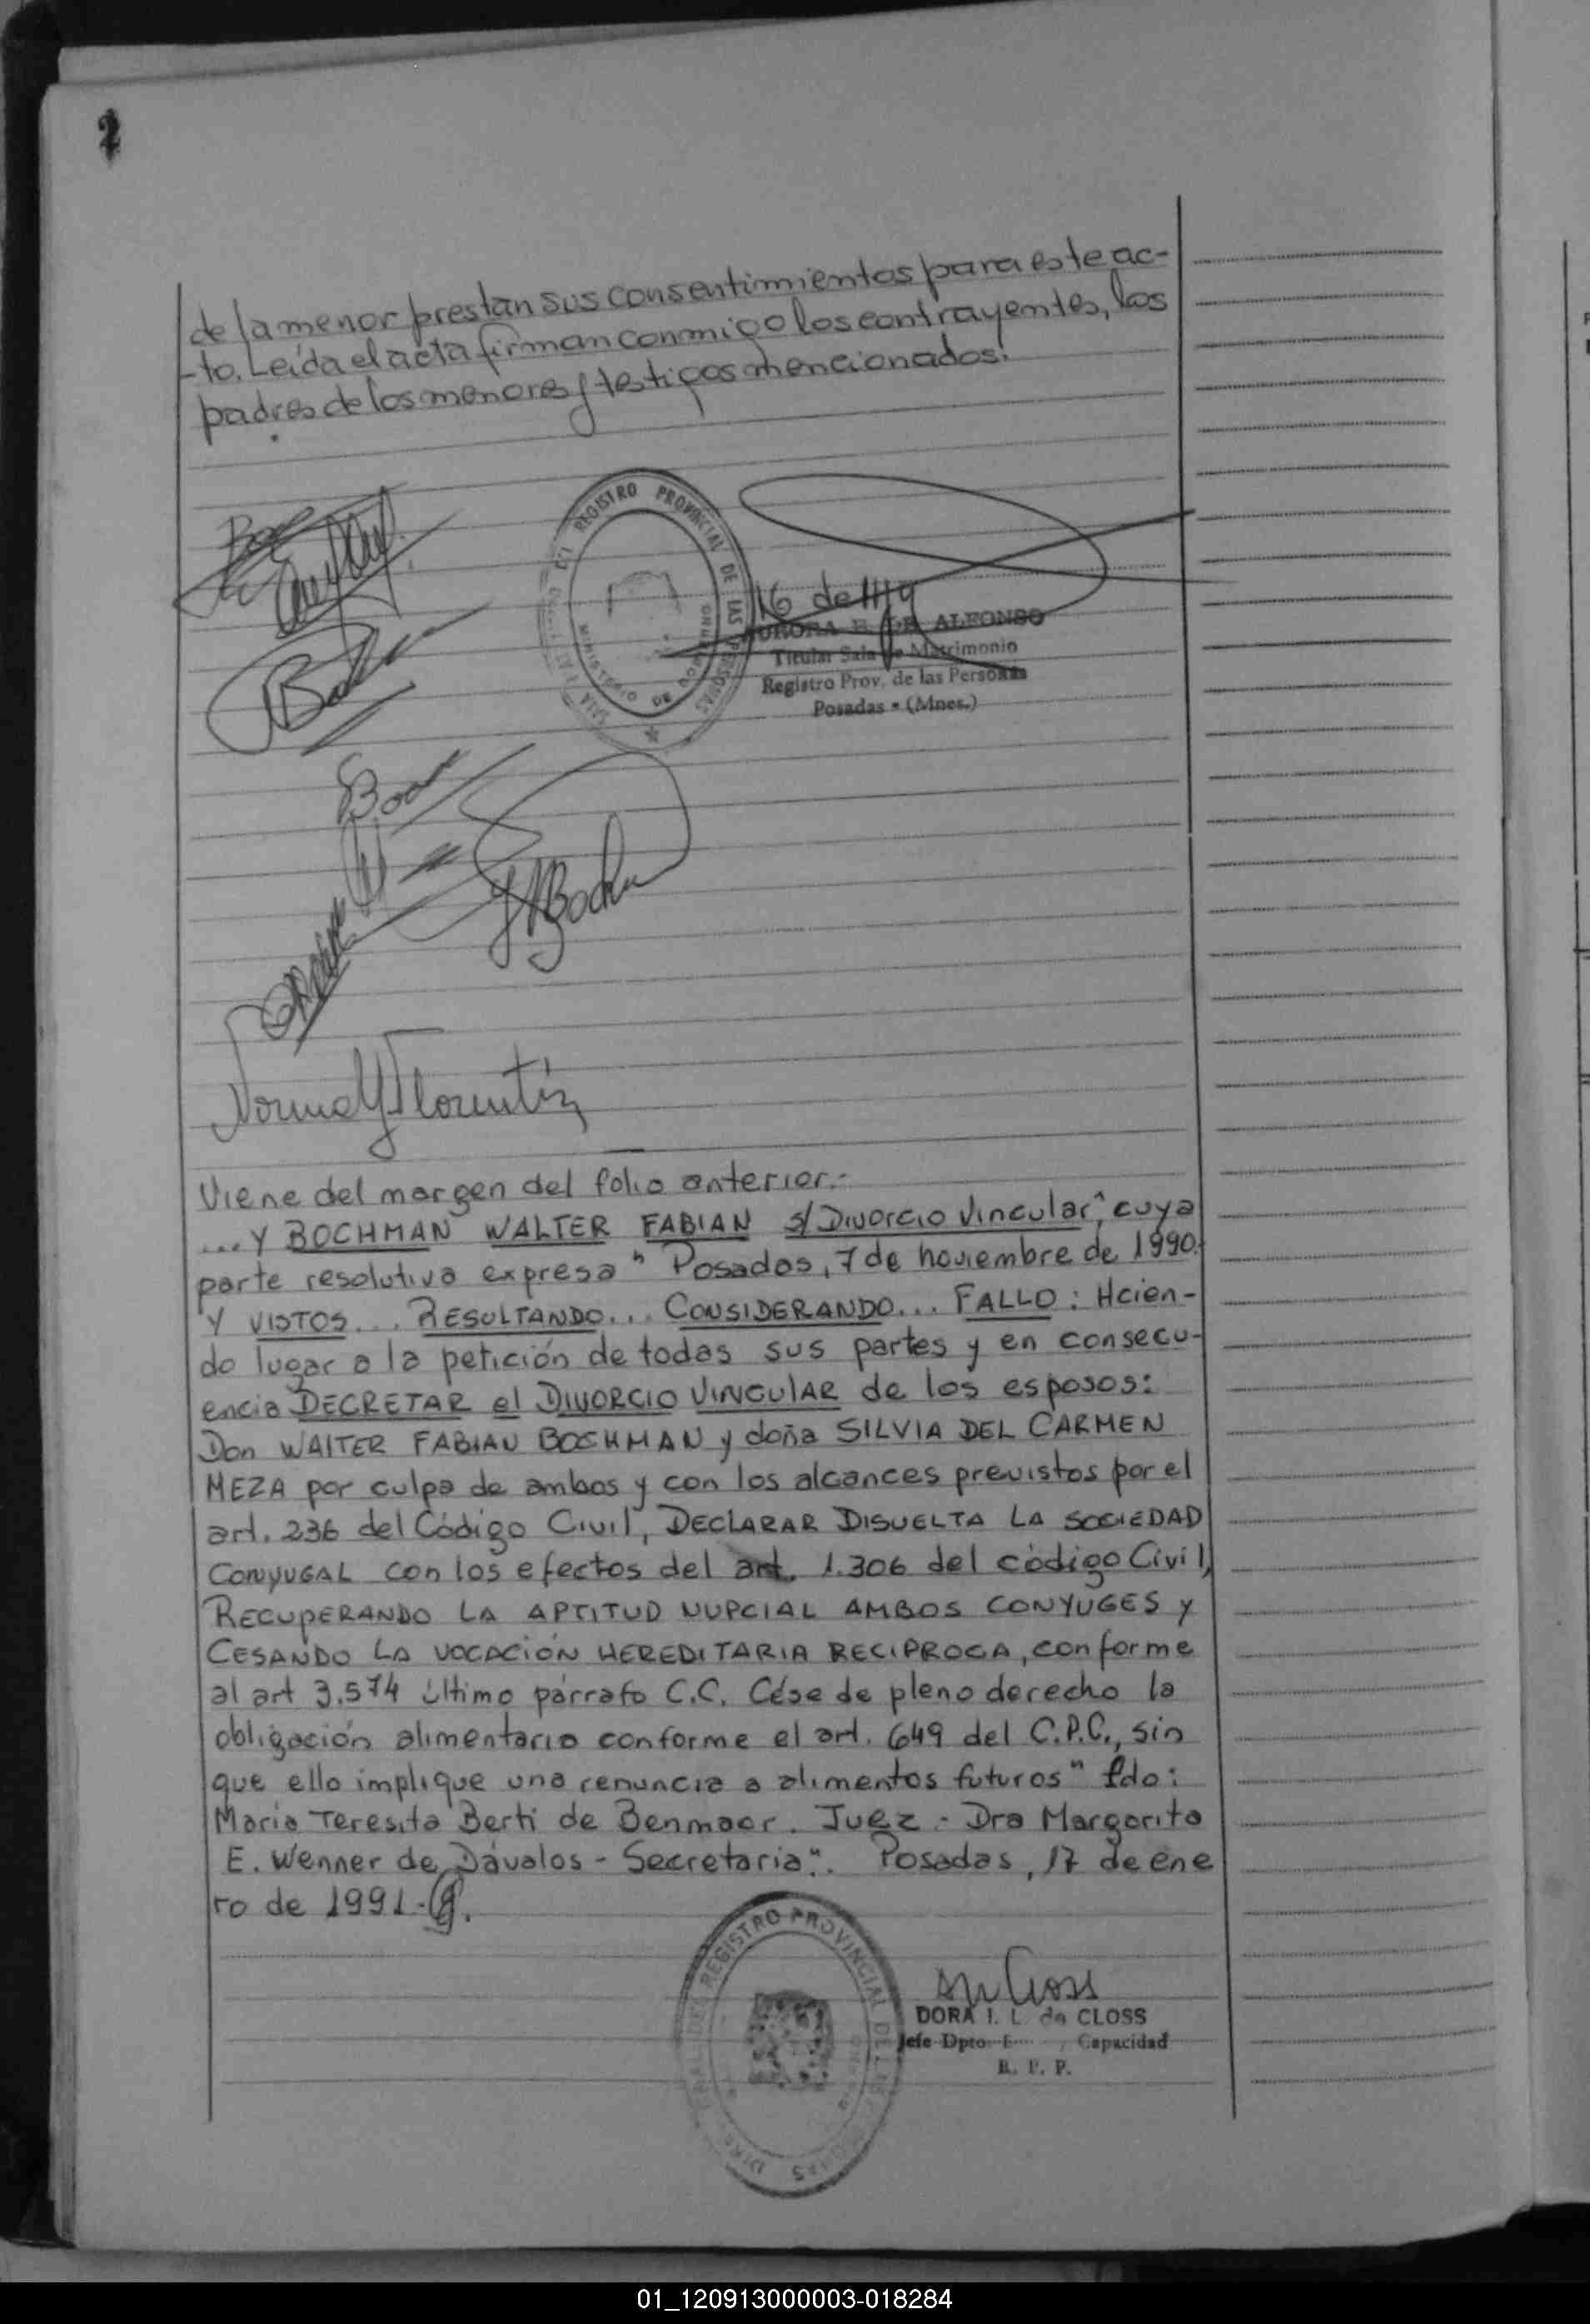 2
de la menor prestan sus consentimientos para este ac-
-to. Leída el acta firman conmigo los contrayentes, los
padres de los menores y testigos mencionados.
REGISTRO PROVINCIAL DE LAS PERSONAS
MINISTERIO DE GOBIERNO
16 de
AURORA E. DE ALFONSO
Titular Sala de Matrimonio
Registro Prov. de las Personas
Posadas - (Mnes.)
Norma Y Florentín
Viene del margen del folio anterior.-
...Y BOCHMAN WALTER FABIAN s/ Divorcio Vincular", cuya
parte resolutiva expresa " Posadas, 7 de noviembre de 1990.
Y VISTOS... RESULTANDO... CONSIDERANDO... FALLO: Hcien-
do lugar a la petición de todas sus partes y en consecu-
encia DECRETAR el DIVORCIO VINCULAR de los esposos:
Don WALTER FABIAN BOCHMAN y doña SILVIA DEL CARMEN
MEZA por culpa de ambos y con los alcances previstos por el
art. 236 del Código Civil, DECLARAR DISUELTA LA SOCIEDAD
CONYUGAL con los efectos del art. 1.306 del código Civil,
RECUPERANDO LA APTITUD NUPCIAL AMBOS CONYUGES Y
CESANDO LA VOCACIÓN HEREDITARIA RECIPROCA, conforme
al art 3.574 último párrafo C.C. Cése de pleno derecho la
obligación alimentaria conforme el art. 649 del C.P.C., sin
que ello implique una renuncia a alimentos futuros" fdo:
Maria Teresita Berti de Benmaor. Juez - Dra Margarita
E. Wenner de Dávalos - Secretaria". Posadas, 17 de ene
ro de 1991.-
REGISTRO PROVINCIAL DE
DORA I. L. de CLOSS
Jefe Dpto. Capacidad
R. P. P.
01_120913000003-018284